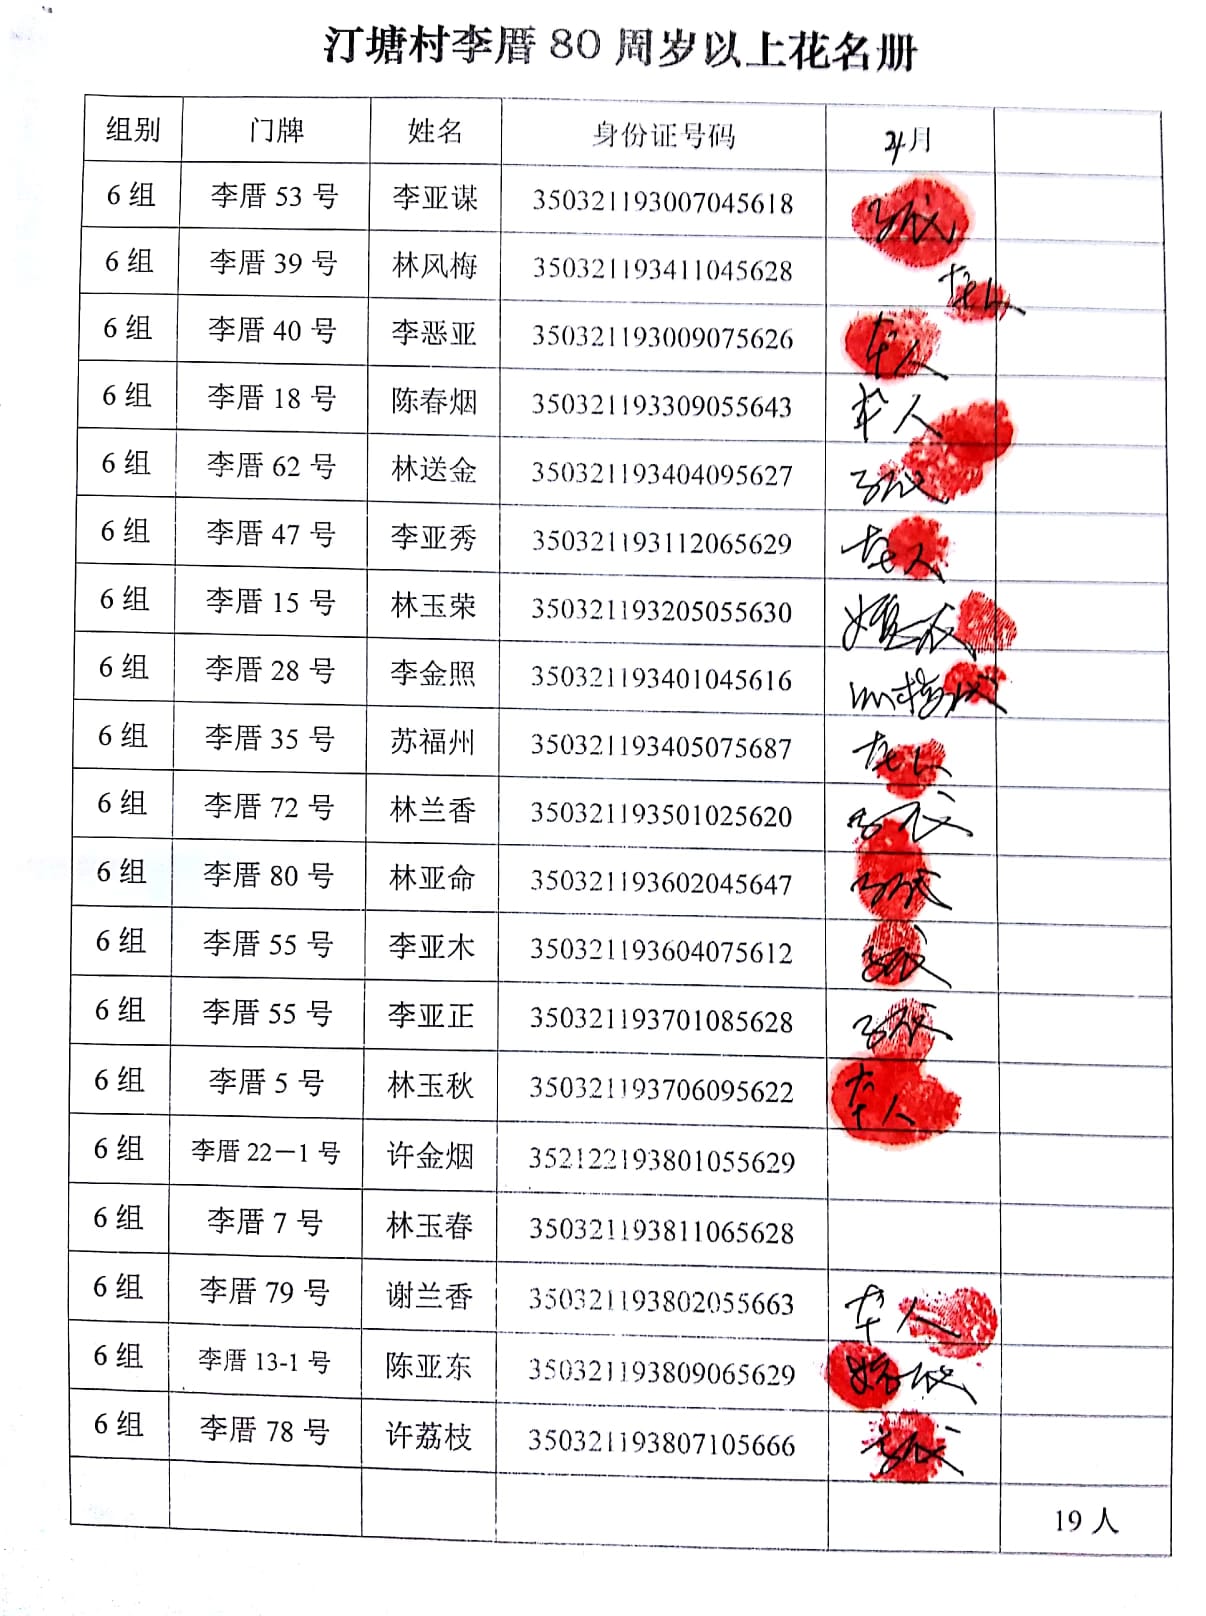 汀塘村李厝 80 周岁以上花名册
组别 门牌 姓名 身份证号码 4月
6 组 李厝 53 号 李亚谋 350321193007045618 子代
6 组 李厝 39 号 林风梅 350321193411045628 本人
6 组 李厝 40 号 李恶亚 350321193009075626 本人
6 组 李厝 18 号 陈春烟 350321193309055643 本人
6 组 李厝 62 号 林送金 350321193404095627 子代
6 组 李厝 47 号 李亚秀 350321193112065629 本人
6 组 李厝 15 号 林玉荣 350321193205055630
6 组 李厝 28 号 李金照 350321193401045616
6 组 李厝 35 号 苏福州 350321193405075687 本人
6 组 李厝 72 号 林兰香 350321193501025620 子代
6 组 李厝 80 号 林亚命 350321193602045647 子代
6 组 李厝 55 号 李亚木 350321193604075612 子代
6 组 李厝 55 号 李亚正 350321193701085628 子代
6 组 李厝 5 号 林玉秋 350321193706095622 本人
6 组 李厝 22－1 号 许金烟 352122193801055629
6 组 李厝 7 号 林玉春 350321193811065628
6 组 李厝 79 号 谢兰香 350321193802055663 本人
6 组 李厝 13-1 号 陈亚东 350321193809065629
6 组 李厝 78 号 许荔枝 350321193807105666 子代
19 人